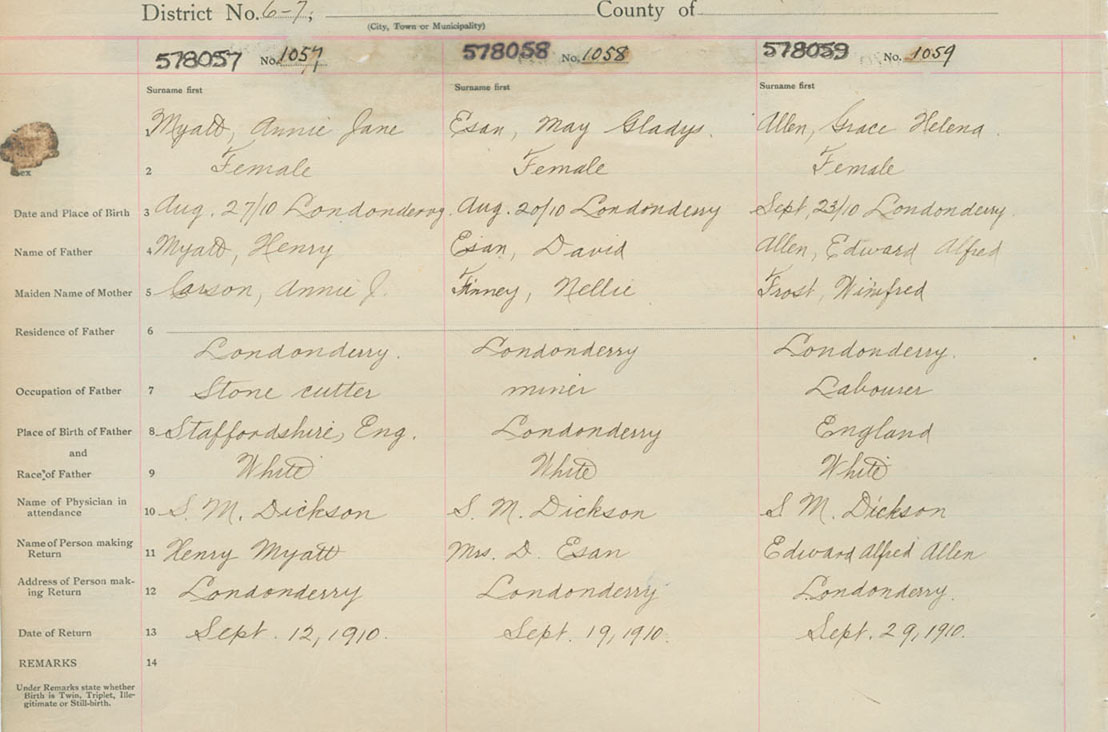 District No. 6-7; County of
(City, Town or Municipality)
578057 No. 1057 578058 No. 1058 578059 No. 1059
Surname first Surname first Surname first
1 Myatt, Annie Jane Esan, May Gladys. Allen, Grace Helena.
Sex 2 Female Female Female
Date and Place of Birth 3 Aug. 27/10 Londonderry. Aug. 20/10 Londonderry Sept, 23/10 Londonderry.
Name of Father 4 Myatt, Henry Esan, David Allen, Edward Alfred
Maiden Name of Mother 5 Carson, Annie J. Finney, Nellie Frost, Winifred
Residence of Father 6
Londonderry. Londonderry Londonderry.
Occupation of Father 7 Stone cutter miner Labourer
Place of Birth of Father 8 Staffordshire, Eng. Londonderry England
and
Race of Father 9 White White White
Name of Physician in
attendance 10 S. M. Dickson S. M. Dickson S M. Dickson
Name of Person making
Return 11 Henry Myatt Mrs. D. Esan Edward Alfred Allen
Address of Person mak-
ing Return 12 Londonderry Londonderry Londonderry.
Date of Return 13 Sept. 12, 1910. Sept. 19, 1910. Sept. 29, 1910.
REMARKS 14
Under Remarks state whether
Birth is Twin, Triplet, Ille-
gitimate or Still-birth.